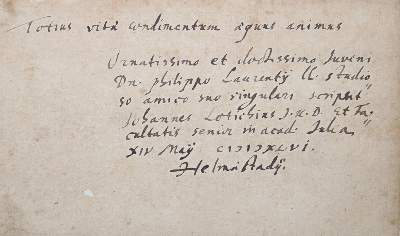 Totius vitæ condimentum æquus animus
Ornatissimo et doctissimo Juveni
Dn. Philippo Laurentÿ ll. studio
so amico suo singulari scripsit
Johannes Lotichius J.U.D. Et Fa
cultatis senior in acad. Julia
XIV Maÿ CIƆIƆXLVI.
Helmstadÿ.